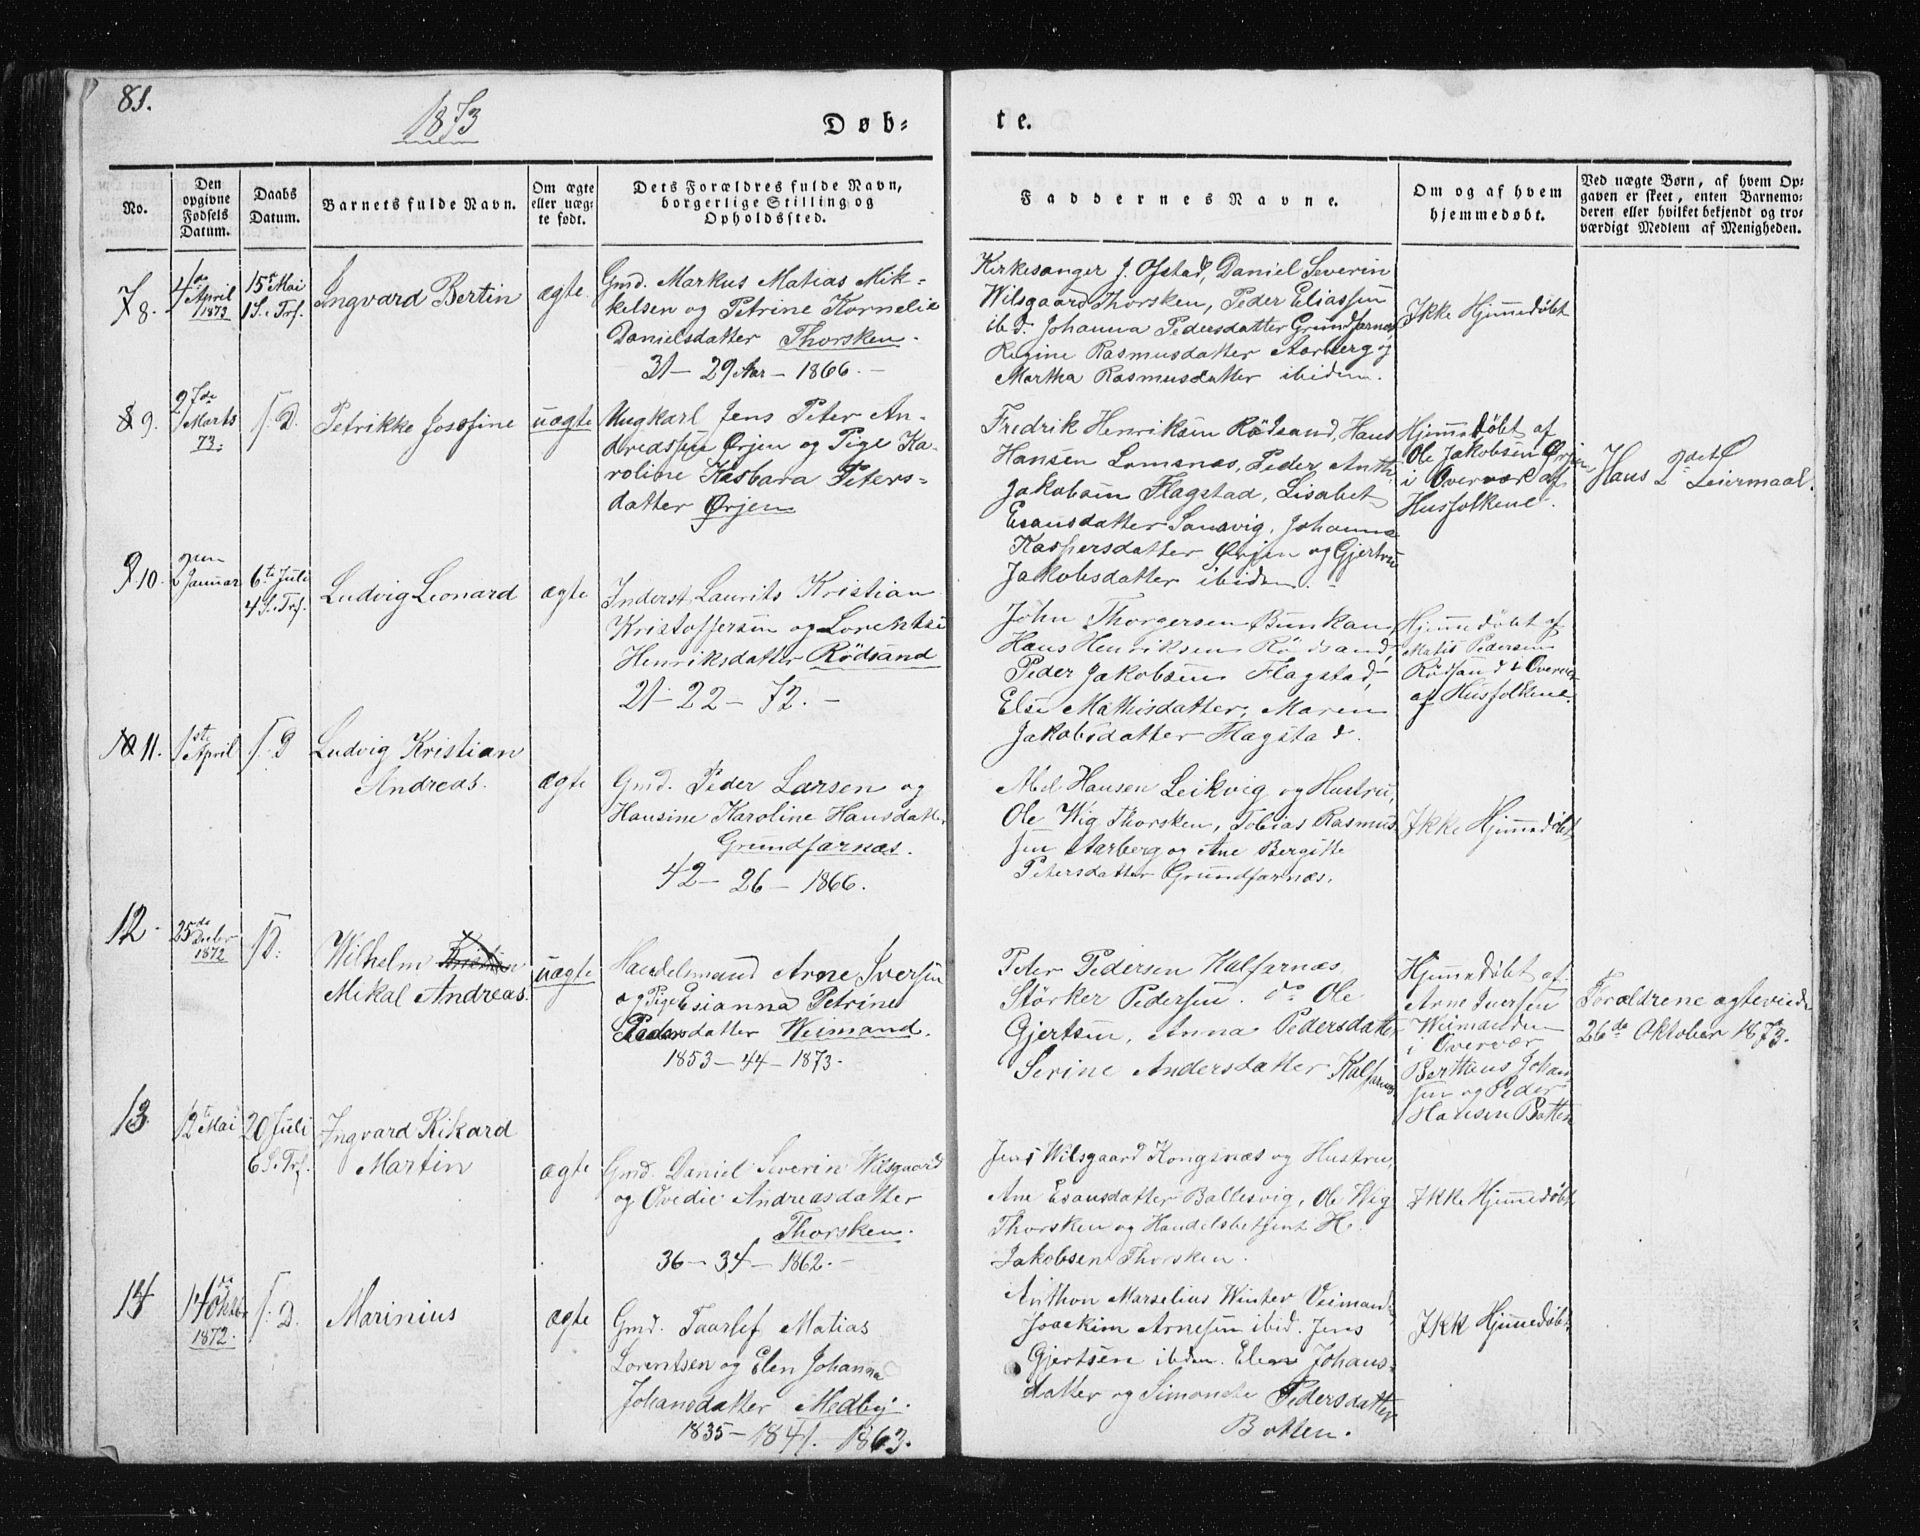 81.
1873
Døb-
te.
No.
Den opgivne Fødsels Datum.
Daabs Datum.
Barnets fulde Navn.
Om ægte eller uæg- te født.
Dets Forældres fulde Navn, borgerlige Stilling og Opholdssted.
Faddernes Navne.
Om og af hvem hjemmedøbt.
Ved uægte Børn, af hvem Op- gaven er skeet, enten Barnemo- deren eller hvilket bekjendt og tro- værdigt Medlem af Menigheden.
7 8.
4de April 1873
15de Mai
1 S. Trf.
Ingvard Bertin
ægte
Gmd. Markus Matias Mik-
kelsen og Petrine Kornelie
Danielsdatter Thorsken.
31 - 29 Aar - 1866. -
Kirkesanger J. Ofstad, Daniel Severin
Wilsgaard Thorsken, Peder Eliassen
ibd. Johanna Pedersdatter Grundfarnæs,
Regine Rasmusdatter Aarberg og
Martha Rasmusdatter ibidem.
Ikke Hjemmedøbt
8 9.
27de Marts 73.
S. D.
Petrikke Josefine
uægte
Ungkarl Jens Peter An-
dreassen Ørjen og Pige Ka-
roline Kasbara Peters-
datter Ørjen
Fredrik Henriksen Rödsand, Hans
Hansen Lomsnæs, Peder Anth.
Jakobsen Flagstad, Lisabet
Esausdatter Sandvig, Johanna
Kaspersdatter Ørjen og Gjertru
Jakobsdatter ibidem. -
Hjemmedøbt af
Ole Jakobsen Ørjen
i Overvær af
Husfolkene.
Hans 2det Leiermaal.
9 10.
2den Januar
6te Juli
4 S. Trf.
Ludvig Leonard
ægte
Inderst Laurits Kristian
Kristoffersen og Lorentse
Henriksdatter Rödsand
21 - 22 - 72. -
John Thorgersen Bunkan,
Hans Henriksen Rödsand,
Peder Jakobsen Flagstad,
Else Mathisdatter, Maren
Jakobsdatter Flagstad.
Hjemmedøbt af
Matis Pedersen
Rödsand i Overvær
af Husfolkene.
10 11.
1ste April
S. D
Ludvig Kristian
Andreas.
ægte
Gmd. Peder Larsen og
Hansine Karoline Hansdatter
Grundfarnæs.
42 - 26 - 1866.
Abel Hansen Leikvig og Hustru,
Ole Wig Thorsken, Tobias Rasmus-
sen Aarberg og Ane Bergitte
Petersdatter Grundfarnæs.
Ikke Hjemmedøbt,
12.
25de Decbr 1872
S. D.
Wilhelm
Mekal Andreas.
uægte
Handelsmand Arne Iversen
og Pige Esianna Petrine
Pedersdatter Weimand.
1853 - 44 - 1873.
Peter Pedersen Kalfarnæs,
Störker Pedersen. do Ole
Gjertsen, Anna Pedersdatter
Serine Andersdatter Kalfarnæs.
Hjemmedøbt af
Arne Iversen
Weimanden
i Overvær
Berthaus Johan-
sen og Peder
Hansen Botten
Forældrene ægteviede
26de Oktober 1873.
13.
12te Mai
20 Juli
6 S. Trf.
Ingvard Rikard
Martin
ægte
Gmd. Daniel Severin Wilsgaard
og Ovedie Andreasdatter
Thorsken.
36 - 34 - 1862. -
Jens Wilsgaard Kongsnæs og Hustru,
Ane Esausdatter Ballesvig, Ole Wig
Thorsken og Handelsbetjent H.
Jakobsen Thorsken.
Ikke Hjemmedøbt
14
14de Oktbr 1872.
S. D.
Marinius
ægte
Gmd. Taarlef Matias
Lorentsen og Elen Johanna
Johansdatter Medby.
1835 - 1841. 1863.
Anthon Marselius Winter Veimand,
Joackim Arnesen ibid. Jens
Gjertsen ibidem. Elen Johans-
datter og Simonche Pedersdatter
Botten.
Ikk Hjemmedøbt.